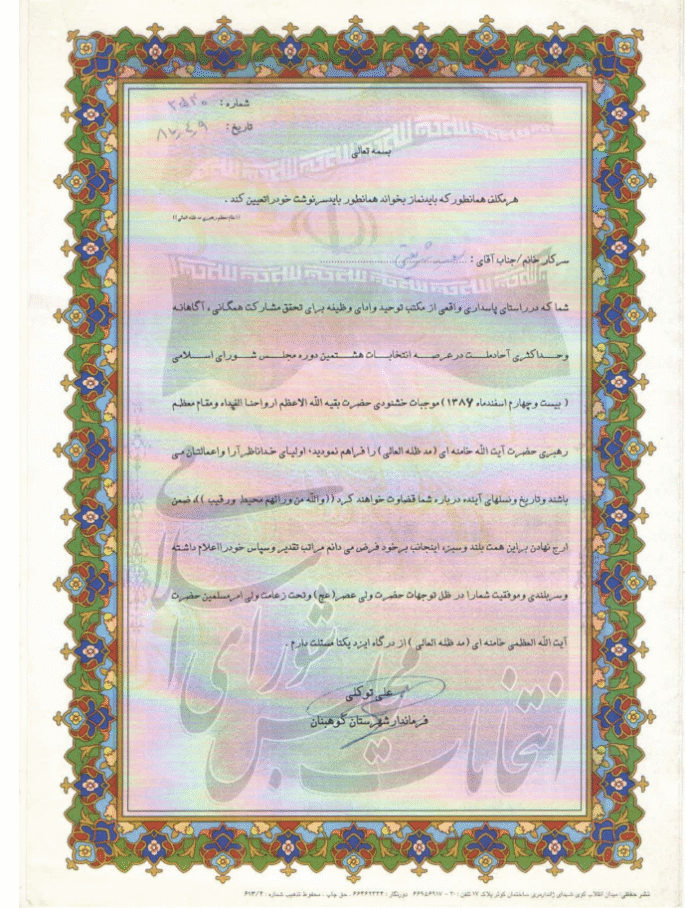 شماره : ۲۰۵۳۰
تاریخ : ۸۷٫۴٫۹
بسمه تعالی
هر مکلف همانطور که باید نماز بخواند همانطور باید سرنوشت خود را تعیین کند .
((مقام معظم رهبری مد ظله العالی))
سرکار خانم/جناب آقای :
شما که در راستای پاسداری واقعی از مکتب توحید و ادای وظیفه برای تحقق مشارکت همگانی ، آگاهانه
وحداکثری آحاد ملت در عرصه انتخابات هشتمین دوره مجلس شورای اسلامی
( بیست و چهارم اسفندماه ۱۳۸۶ ) موجبات خشنودی حضرت بقیه الله الاعظم ارواحنا الفداء ومقام معظم
رهبری حضرت آیت الله خامنه ای ( مد ظله العالی ) را فراهم نمودید، اولیای خداناظر آرا و اعمالتان می
باشند وتاریخ ونسلهای آینده درباره شما قضاوت خواهند کرد (( والله من ورائهم محیط ورقیب ))، ضمن
ارج نهادن بر این همت بلند وسبز، اینجانب برخود فرض می دانم مراتب تقدیر وسپاس خود را اعلام داشته
وسربلندی وموفقیت شما را در ظل توجهات حضرت ولی عصر(عج) وتحت زعامت ولی امر مسلمین حضرت
آیت الله العظمی خامنه ای ( مد ظله العالی ) از درگاه ایزد یکتا مسئلت دارم .
علی توکلی
فرماندار شهرستان کوهبنان
انتخابات مجلس شورای اسلامی
نشر حقانی: میدان انقلاب کوی شهدای ژاندارمری ساختمان کوثر پلاک ۱۷ تلفن : ۲۰ - ۶۶۹۵۶۹۱۷ دورنگار : ۶۶۴۶۲۲۳۴ . حق چاپ . محفوظ تذهیب شماره : ۶۱۳/۴